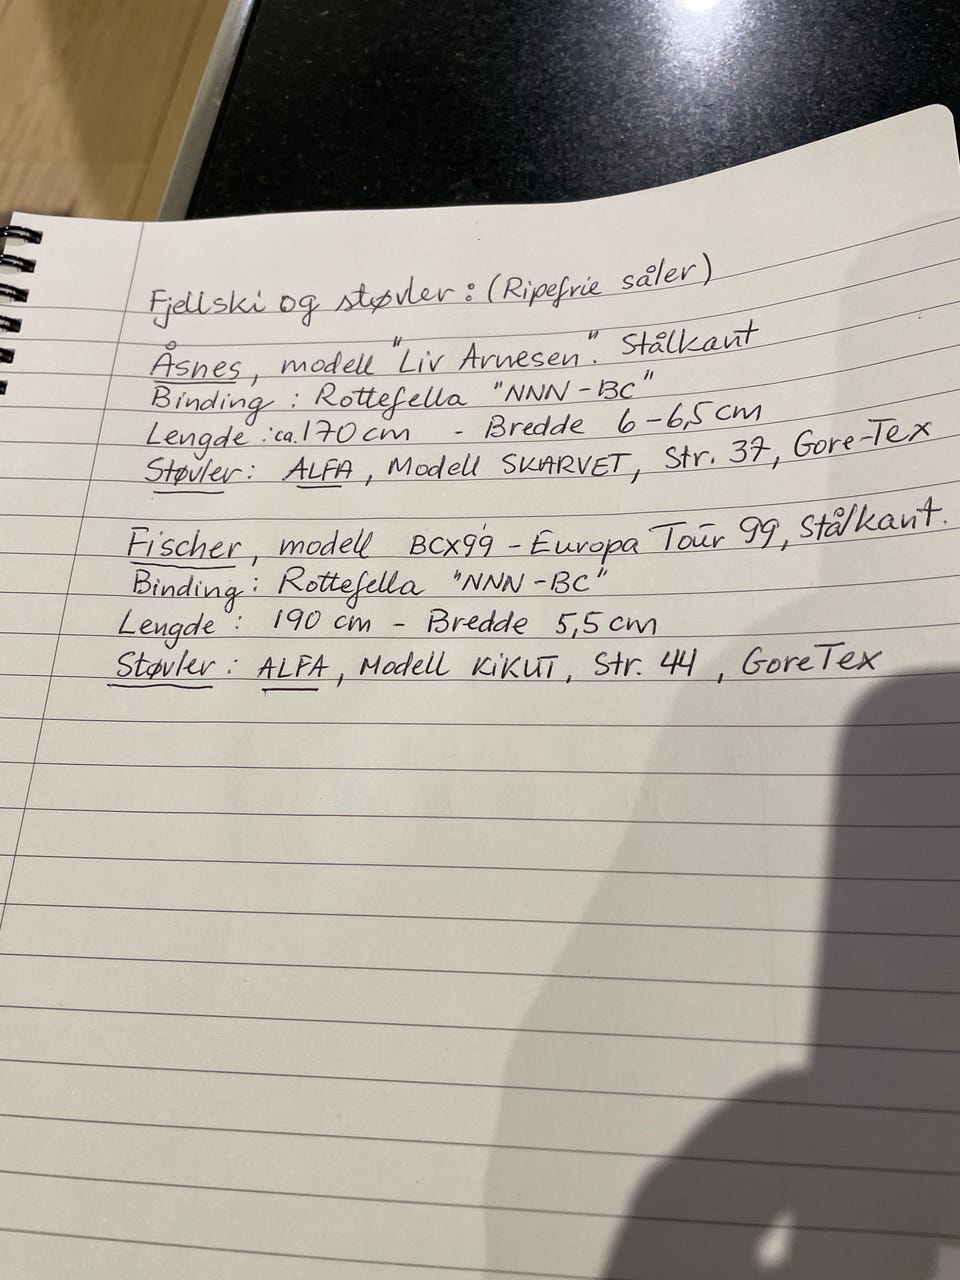 Fjellski og støvler: (Ripefrie såler)
Åsnes, modell "Liv Arnesen". Stålkant
Binding: Rottefella "NNN-BC"
Lengde: ca. 170 cm - Bredde 6-6,5 cm
Støvler: ALFA, Modell SKARVET, Str. 37, Gore-Tex
Fischer, modell BCX99 - Europa Tour 99, Stålkant.
Binding: Rottefella "NNN-BC"
Lengde: 190 cm - Bredde 5,5 cm
Støvler: ALFA, Modell KIKUT, Str. 44, GoreTex